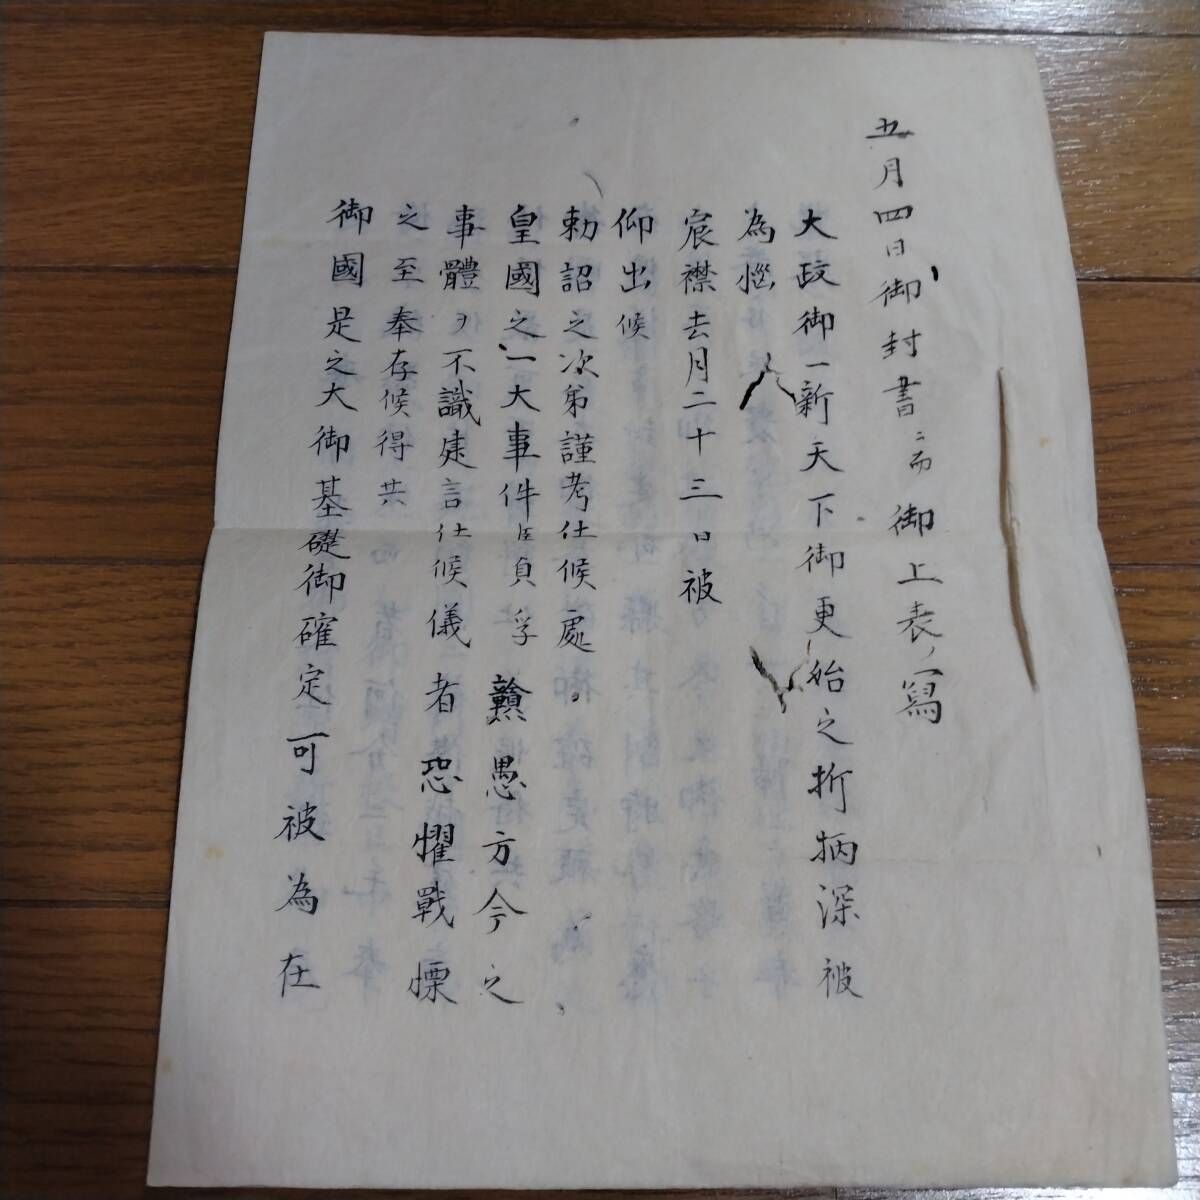 五月四日御封書ニ而御上表ノ寫
大政御一新天下御更始之折柄深被
為惱
宸襟去月二十三日被
仰出候
勅詔之次第謹考仕候處
皇國之一大事件臣貞孚贛愚方今之
事體ヲ不識建言仕候儀者恐懼戰慄
之至奉存候得共
御國是之大御基礎御確定可被為在